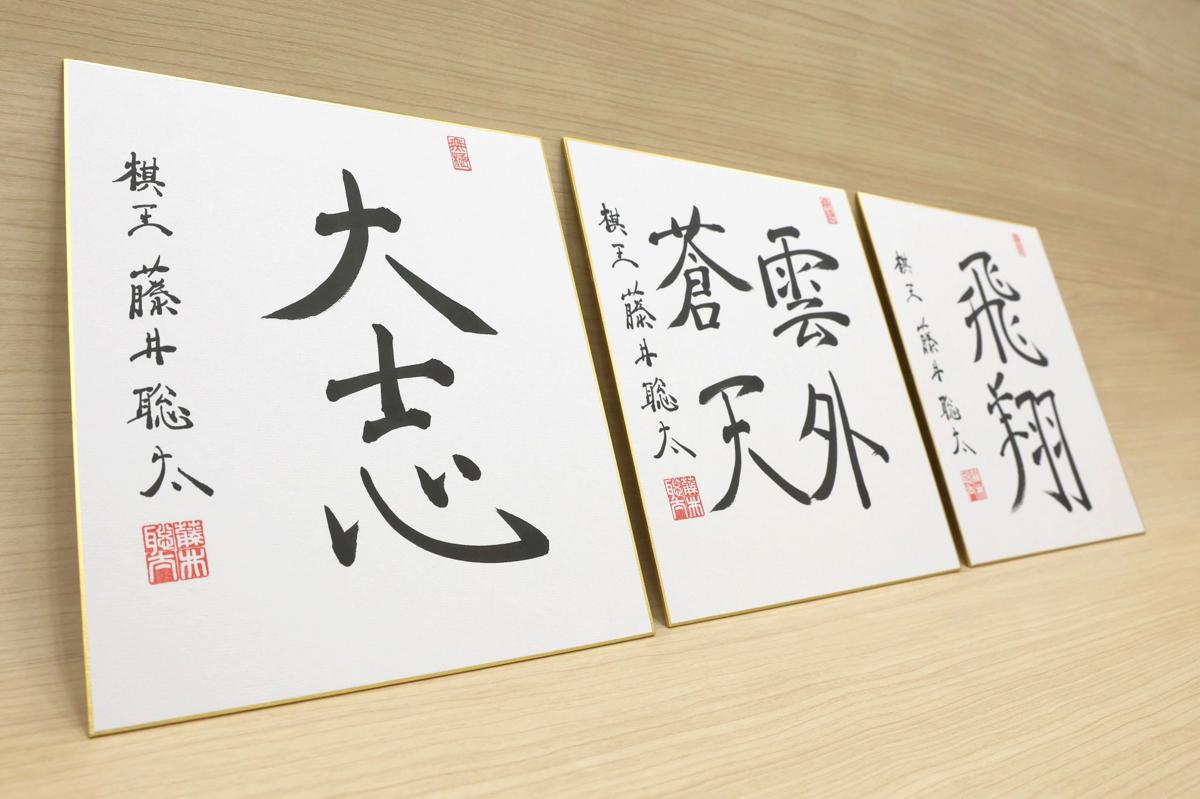 大志
棋王 藤井聡太
藤井
聡太
雲外
蒼天
棋王 藤井聡太
藤井
聡太
飛翔
棋王 藤井聡太